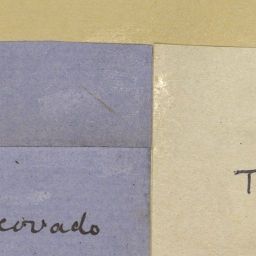 covado
T